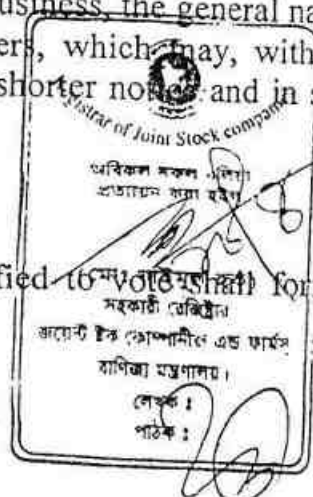 business, the general na
ers, which may, with
shorter notice and in s
Registrar of Joint Stock compan
অবিকল নকল বলিয়া
প্রত্যয়ন করা হইল
fied to vote shall for
সহকারী রেজিষ্ট্রার
জয়েন্ট ষ্টক কোম্পানীজ এন্ড ফার্মস
বাণিজ্য মন্ত্রণালয়।
লেখক :
পাঠক :